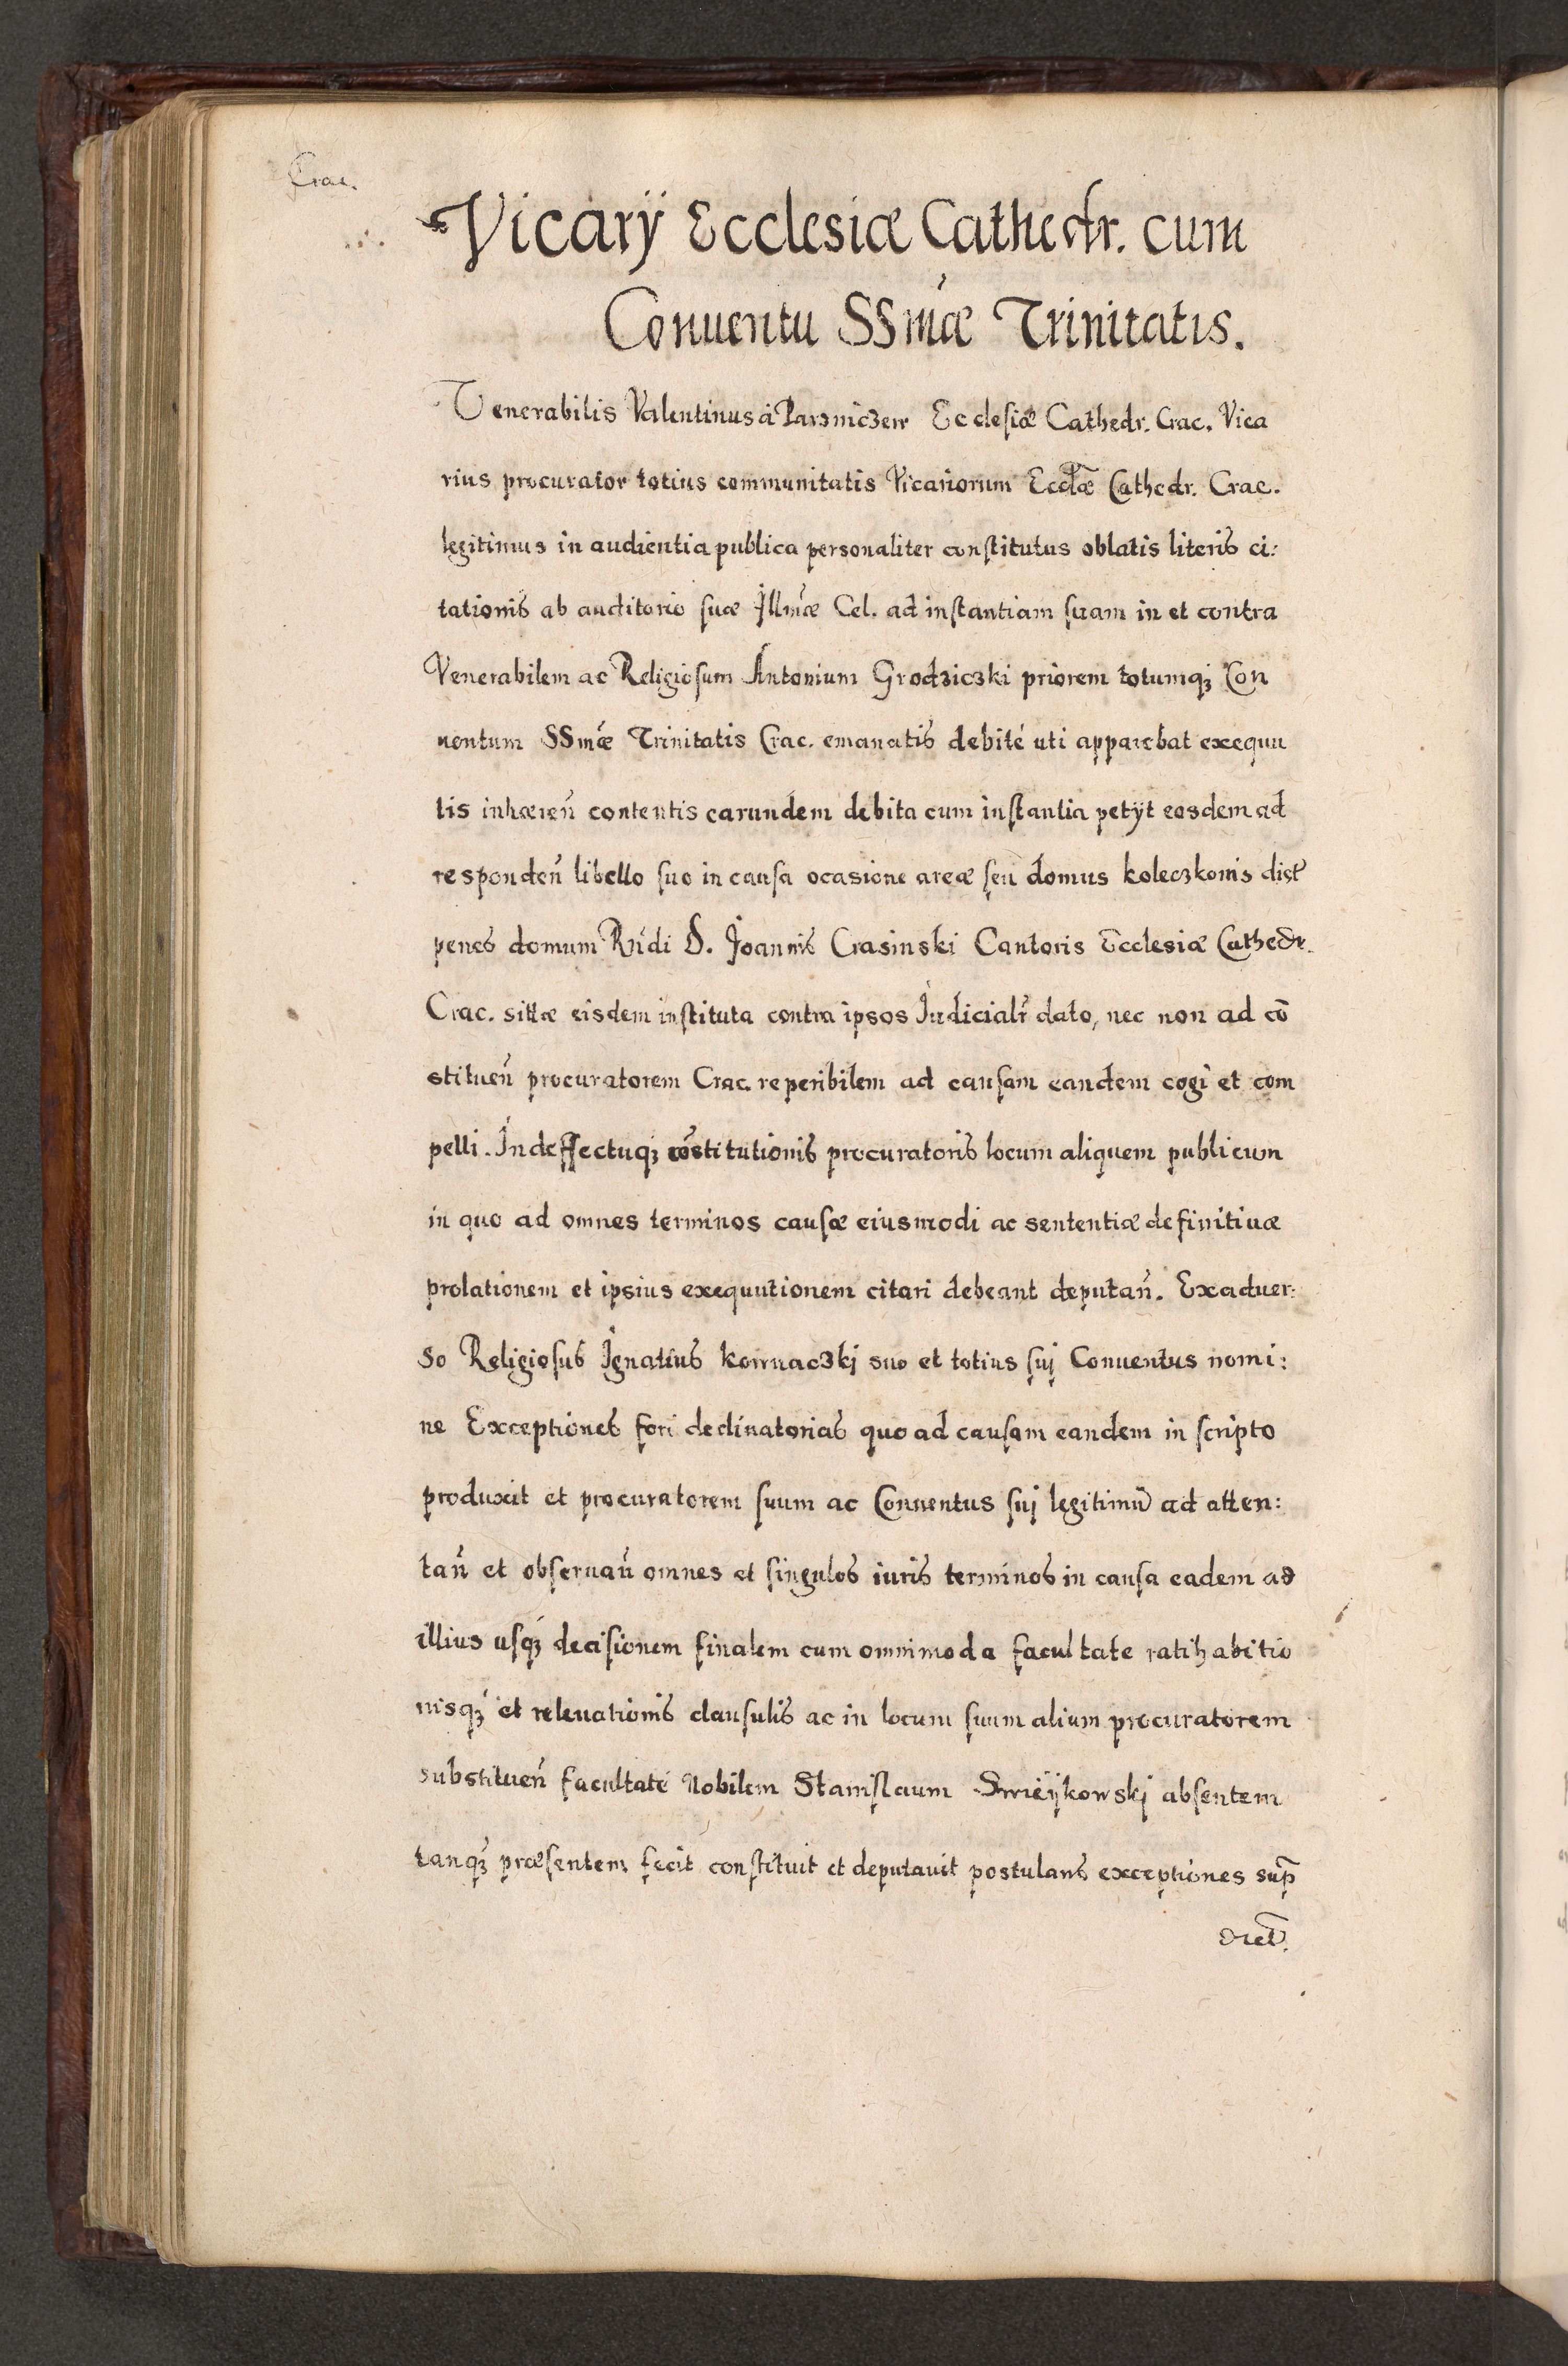 Crac.
Vicarÿ Ecclesiæ Cathedr. cum
Conuentu SSmæ Trinitatis.
Venerabilis Valentinus à Ecclesiæ Cathedr. Crac. Vica
rius procurator totius communitatis Vicariorum Eccłæ Cathedr. Crac.
legitimus in audientia publica personaliter constitutus oblatis literis ci:
tationis ab auditorio suæ Illmæ Cel. ad instantiam suam in et contra
Venerabilem ac Religiosum Antonium Grodziczki priorem totumqꝫ Con
uentum SSmæ Trinitatis Crac. emanatis debité uti apparebat exequu
tis inhæreñ contentis earundem debita cum instantia petÿt eosdem ad
respondeñ libello suo in causa ocasione areæ seu domus koleczkonis dict̃
penes domum Rñdi D. Joannis Crasinski Cantoris Ecclesiæ Cathedr.
Crac. sittæ eisdem instituta contra ipsos Judicialr̃ dato, nec non ad cõ
stitueñ procuratorem Crac. reperibilem ad causam eandem cogi et com
pelli. In deffectuqꝫ cõstitutionis procuratoris locum aliquem publicum
in quo ad omnes terminos causæ eiusmodi ac sententiæ definitiuæ
prolationem et ipsius exequutionem citari debeant deputañ. Exaduer:
so Religiosus Ignatius konuaczkj suo et totius suj Conuentus nomi:
ne Exceptiones fori declinatorias quo ad causam eandem in scripto
produxit et procuratorem suum ac Conuentus suj legitimũ ad atten:
tañ et obseruañ omnes et singulos iuris terminos in causa eadem ad
illius usqꝫ decisionem finalem cum omnimoda facultate ratihabitio
nisqꝫ et releuationis clausulis ac in locum suum alium procuratorem
substitueñ facultate Nobilem Stanislaum Smieÿkowskj absentem
tanqꝫ præsentem fecit constituit et deputauit postulans exceptiones sup̃
dict̃.